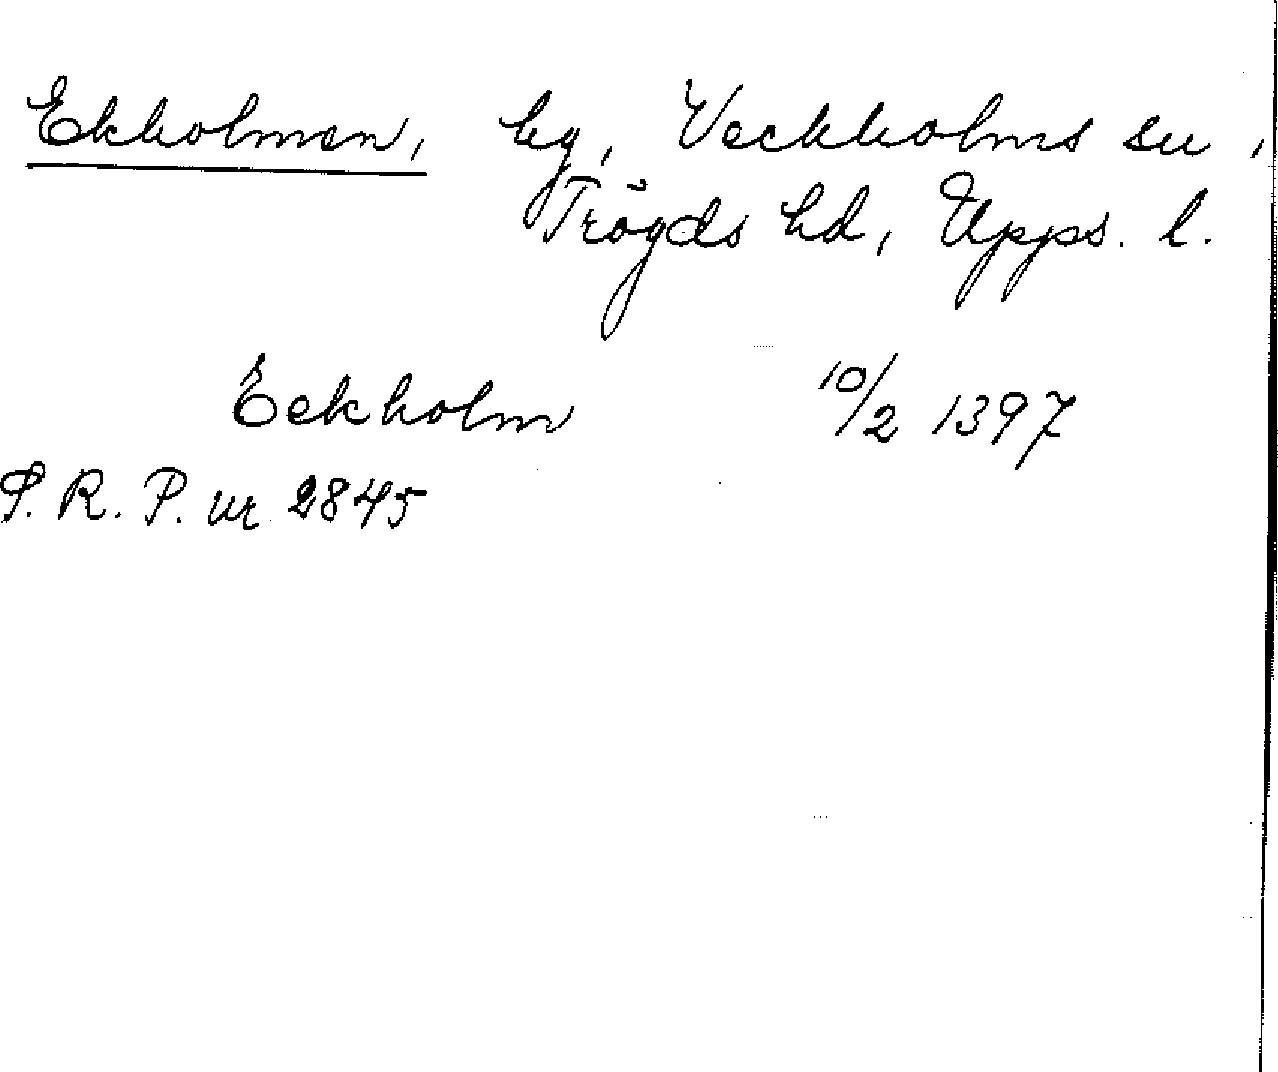 Ekholmen, hg, Veckholms sn,
Trögds hd, Upps. l.
Eekholm 10/2 1397
S. R. P. nr 2845